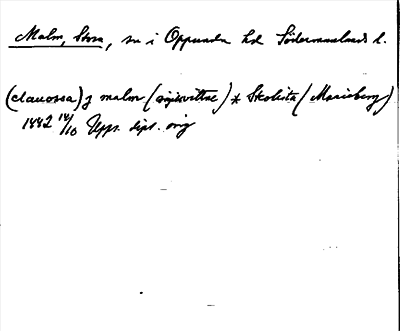 Malm, Stora, sn i Oppunda hd Södermanlands l.
(clauossa) j malm (sigilvittne) * Skolista (Marieberg)
1442 18/10 Upps. dipl. orig